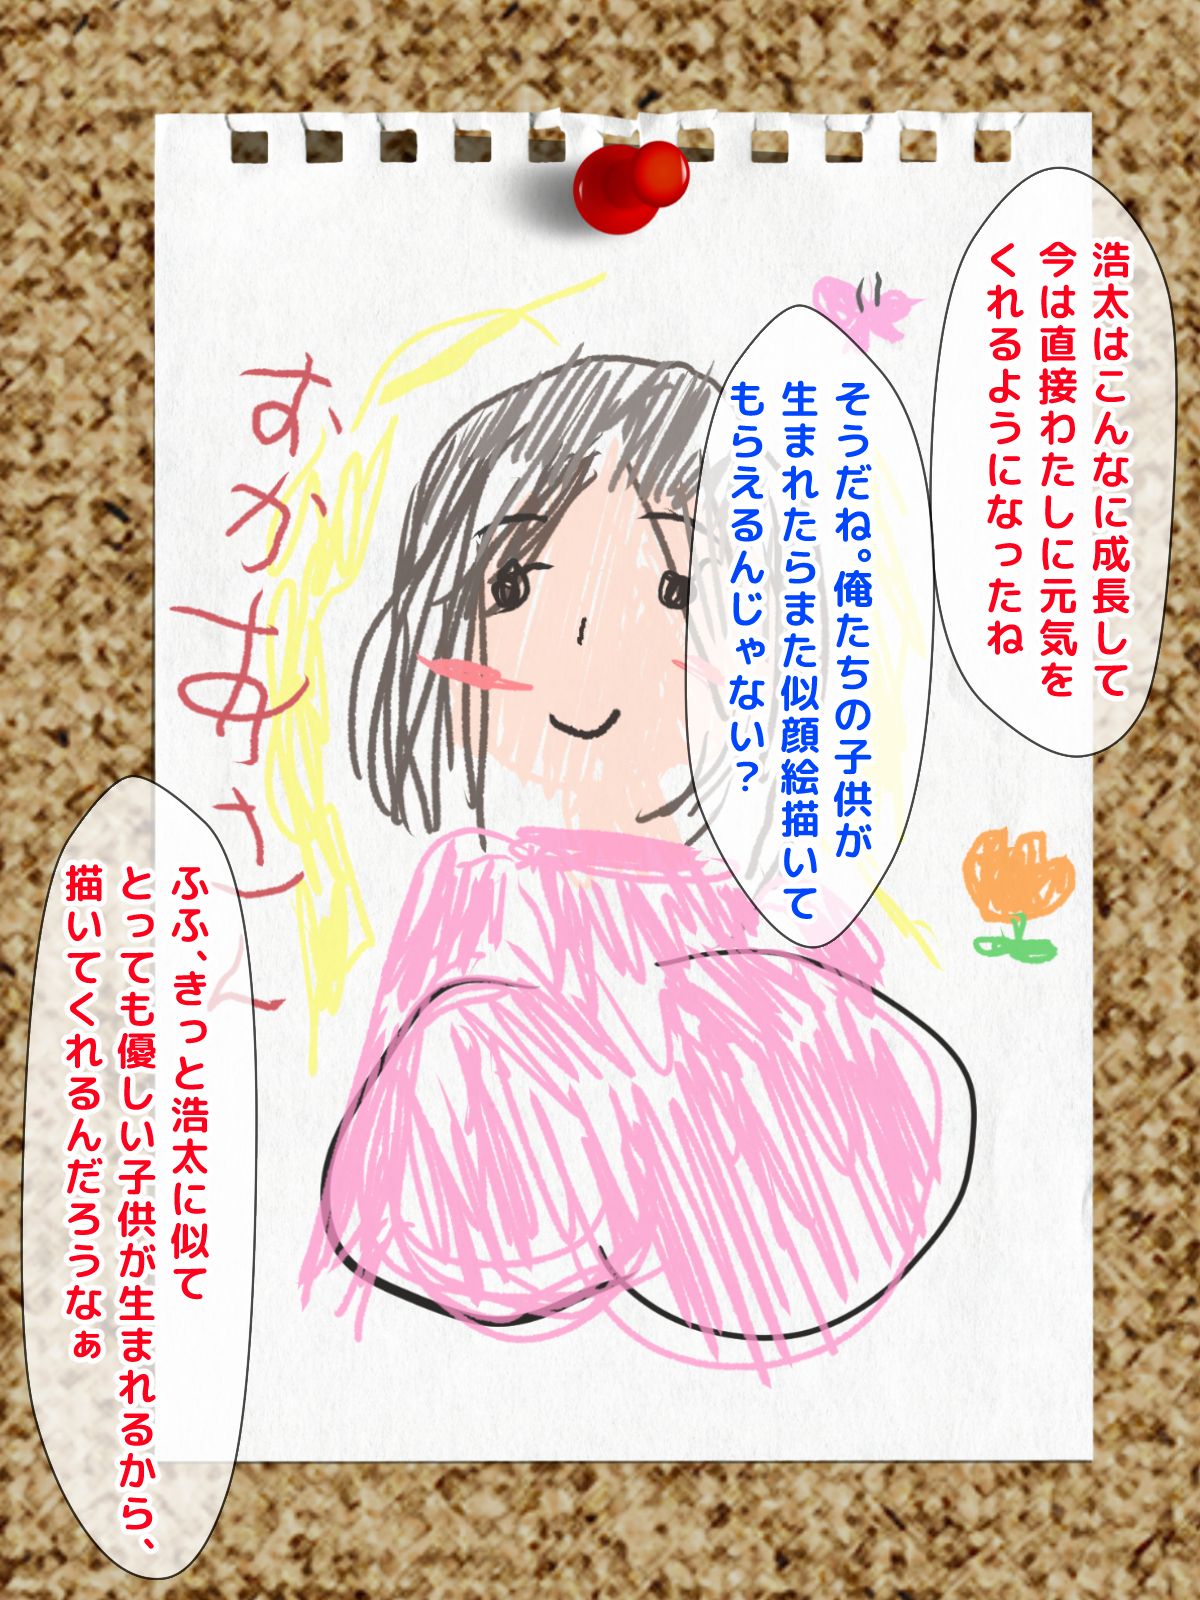 浩太はこんなに成長して
今は直接わたしに元気を
くれるようになったね
そうだね。俺たちの子供が
生まれたらまた似顔絵描いて
もらえるんじゃない？
おかあさん
ふふ、きっと浩太に似て
とっても優しい子供が生まれるから、
描いてくれるんだろうなぁ